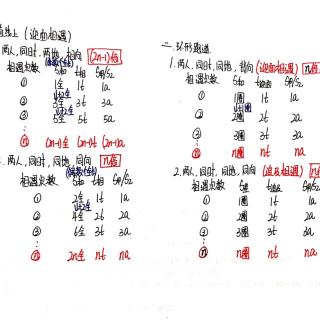 直线上（迎面相遇）
两人，同时，两地，相向 (2n-1)倍
相遇次数 S和 t相 S甲/S乙
① 1全 1t 1a
② 3全 3t 3a
③ 5全 5t 5a
⋮
ⓝ (2n-1)全 (2n-1)t (2n-1)a
两人，同时，同地，同向 n倍
相遇次数 S和 t相 S甲/S乙
① 2全 1t 1a
② 4全 2t 2a
③ 6全 3t 3a
⋮
ⓝ 2n全 nt na
二、环形跑道
1. 两人，同时，同地，背向（迎面相遇）
相遇次数 S和 t相 S甲/S乙
① 1圈 1t 1a
② 2圈 2t 2a
③ 3圈 3t 3a
⋮
ⓝ n圈 nt na
2. 两人，同时，同地，同向（追及相遇）
相遇次数 S差 t追 S甲/S乙
① 1圈 1t 1a
② 2圈 2t 2a
3圈 3t 3a
⋮
ⓝ n圈 nt na